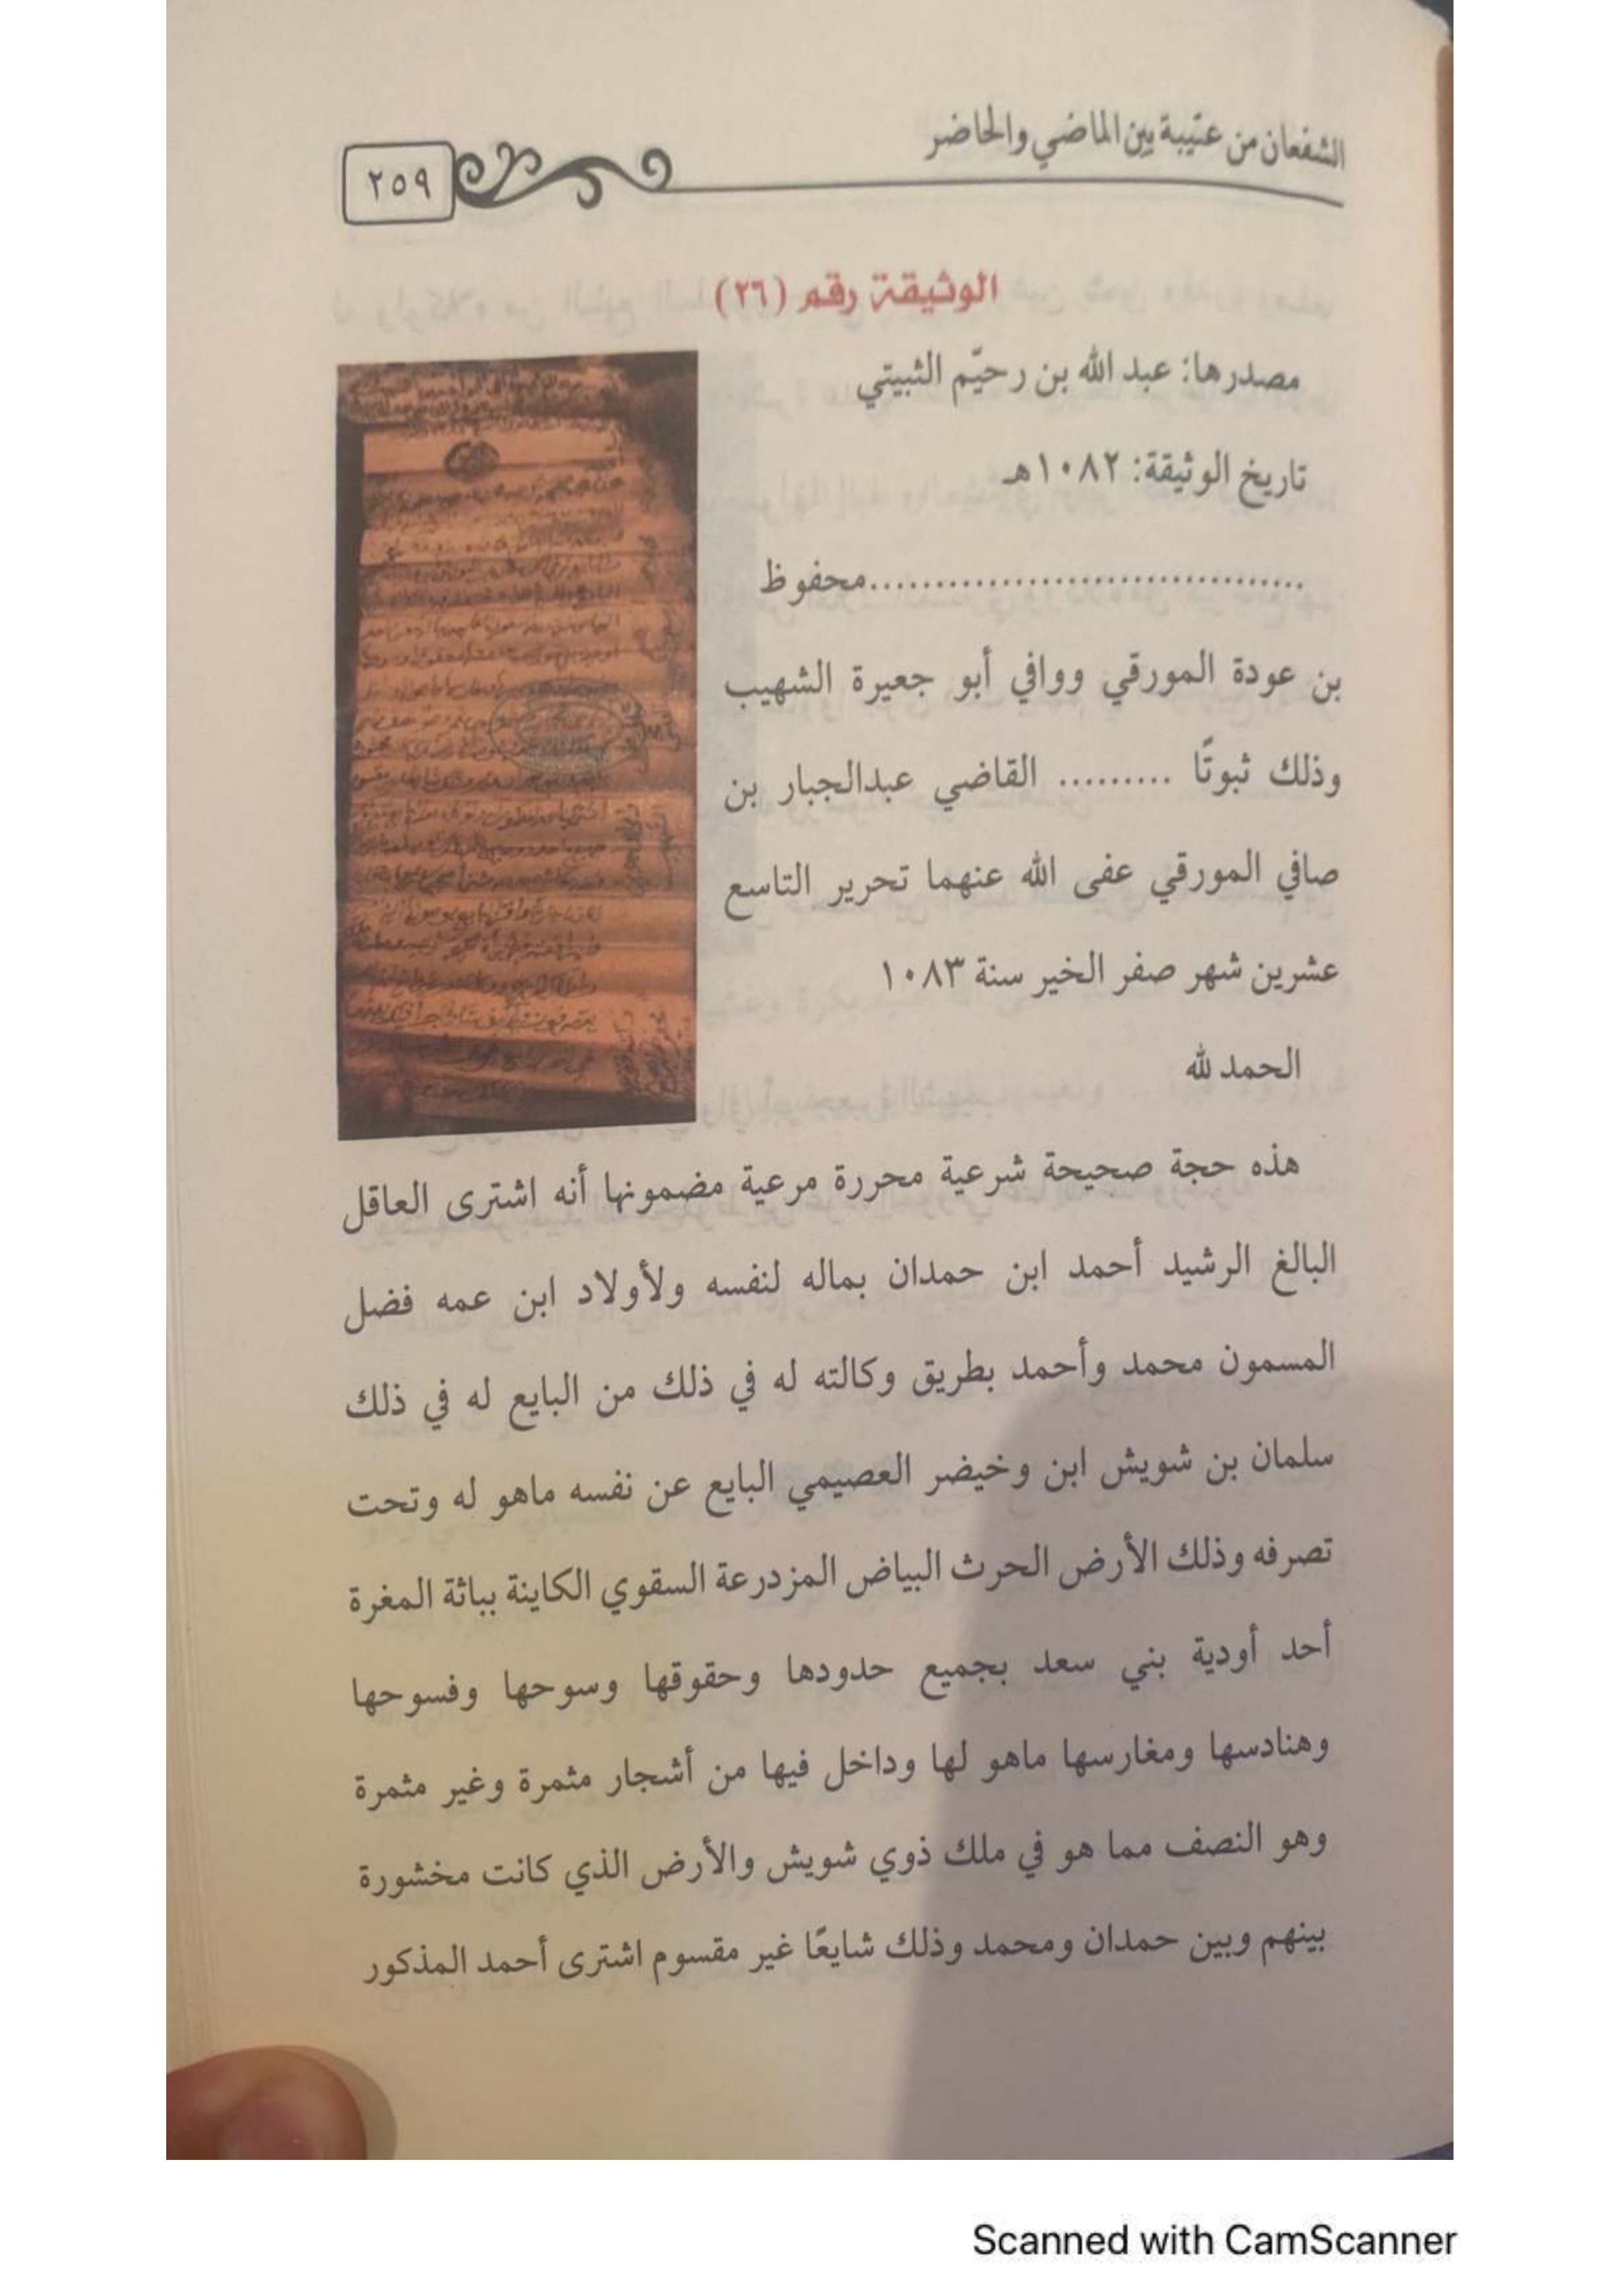 الشفعان من عتيبة بين الماضي والحاضر
٢٥٩
الوثيقة رقم (٢٦)
مصدرها: عبد الله بن رحيّم الثبيتي
تاريخ الوثيقة: ١٠٨٢هـ
.................................محفوظ
بن عودة المورقي ووافي أبو جعيرة الشهيب
وذلك ثبوتًا ......... القاضي عبدالجبار بن
صافي المورقي عفى الله عنهما تحرير التاسع
عشرين شهر صفر الخير سنة ١٠٨٣
الحمد لله
هذه حجة صحيحة شرعية محررة مرعية مضمونها أنه اشترى العاقل
البالغ الرشيد أحمد ابن حمدان بماله لنفسه ولأولاد ابن عمه فضل
المسمون محمد وأحمد بطريق وكالته له في ذلك من البايع له في ذلك
سلمان بن شويش ابن وخيضر العصيمي البايع عن نفسه ماهو له وتحت
تصرفه وذلك الأرض الحرث البياض المزدرعة السقوي الكاينة بباثة المغرة
أحد أودية بني سعد بجميع حدودها وحقوقها وسوحها وفسوحها
وهنادسها ومغارسها ماهو لها وداخل فيها من أشجار مثمرة وغير مثمرة
وهو النصف مما هو في ملك ذوي شويش والأرض الذي كانت مخشورة
بينهم وبين حمدان ومحمد وذلك شايعًا غير مقسوم اشترى أحمد المذكور
Scanned with CamScanner